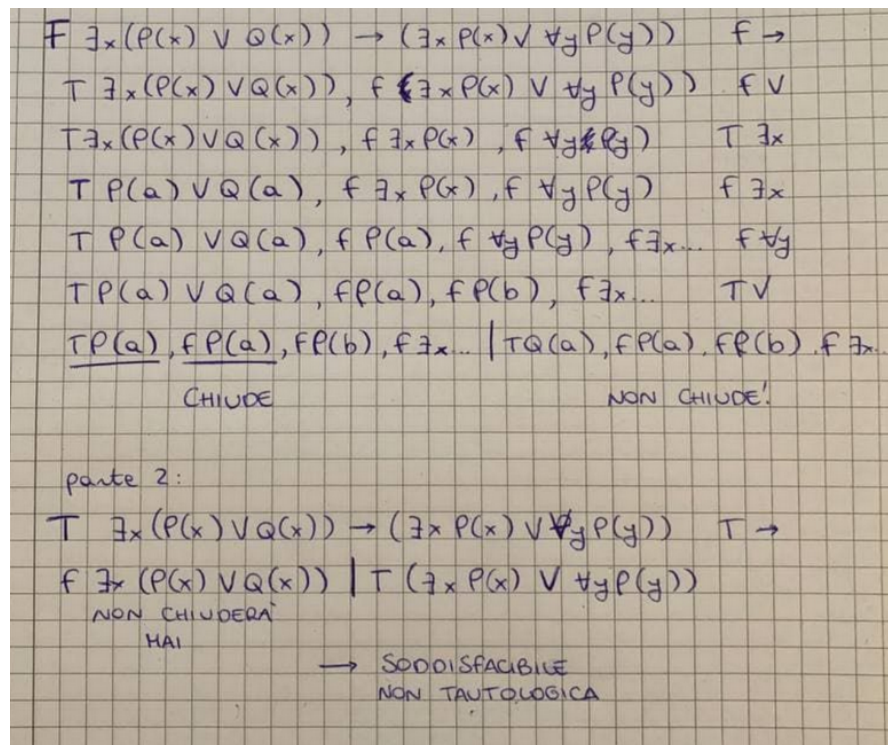 F ∃x(P(x) ∨ Q(x)) → (∃x P(x) ∨ ∀y P(y)) F →
T ∃x(P(x) ∨ Q(x)), F (∃x P(x) ∨ ∀y P(y)) F ∨
T ∃x(P(x) ∨ Q(x)), F ∃x P(x), F ∀y P(y) T ∃x
T P(a) ∨ Q(a), F ∃x P(x), F ∀y P(y) F ∃x
T P(a) ∨ Q(a), F P(a), F ∀y P(y), F ∃x... F ∀y
T P(a) ∨ Q(a), F P(a), F P(b), F ∃x... T ∨
T P(a), F P(a), F P(b), F ∃x... | T Q(a), F P(a), F P(b), F ∃x...
CHIUDE NON CHIUDE!
parte 2:
T ∃x(P(x) ∨ Q(x)) → (∃x P(x) ∨ ∀y P(y)) T →
F ∃x(P(x) ∨ Q(x)) | T (∃x P(x) ∨ ∀y P(y))
NON CHIUDERÀ
MAI
→ SODDISFACIBILE
NON TAUTOLOGICA